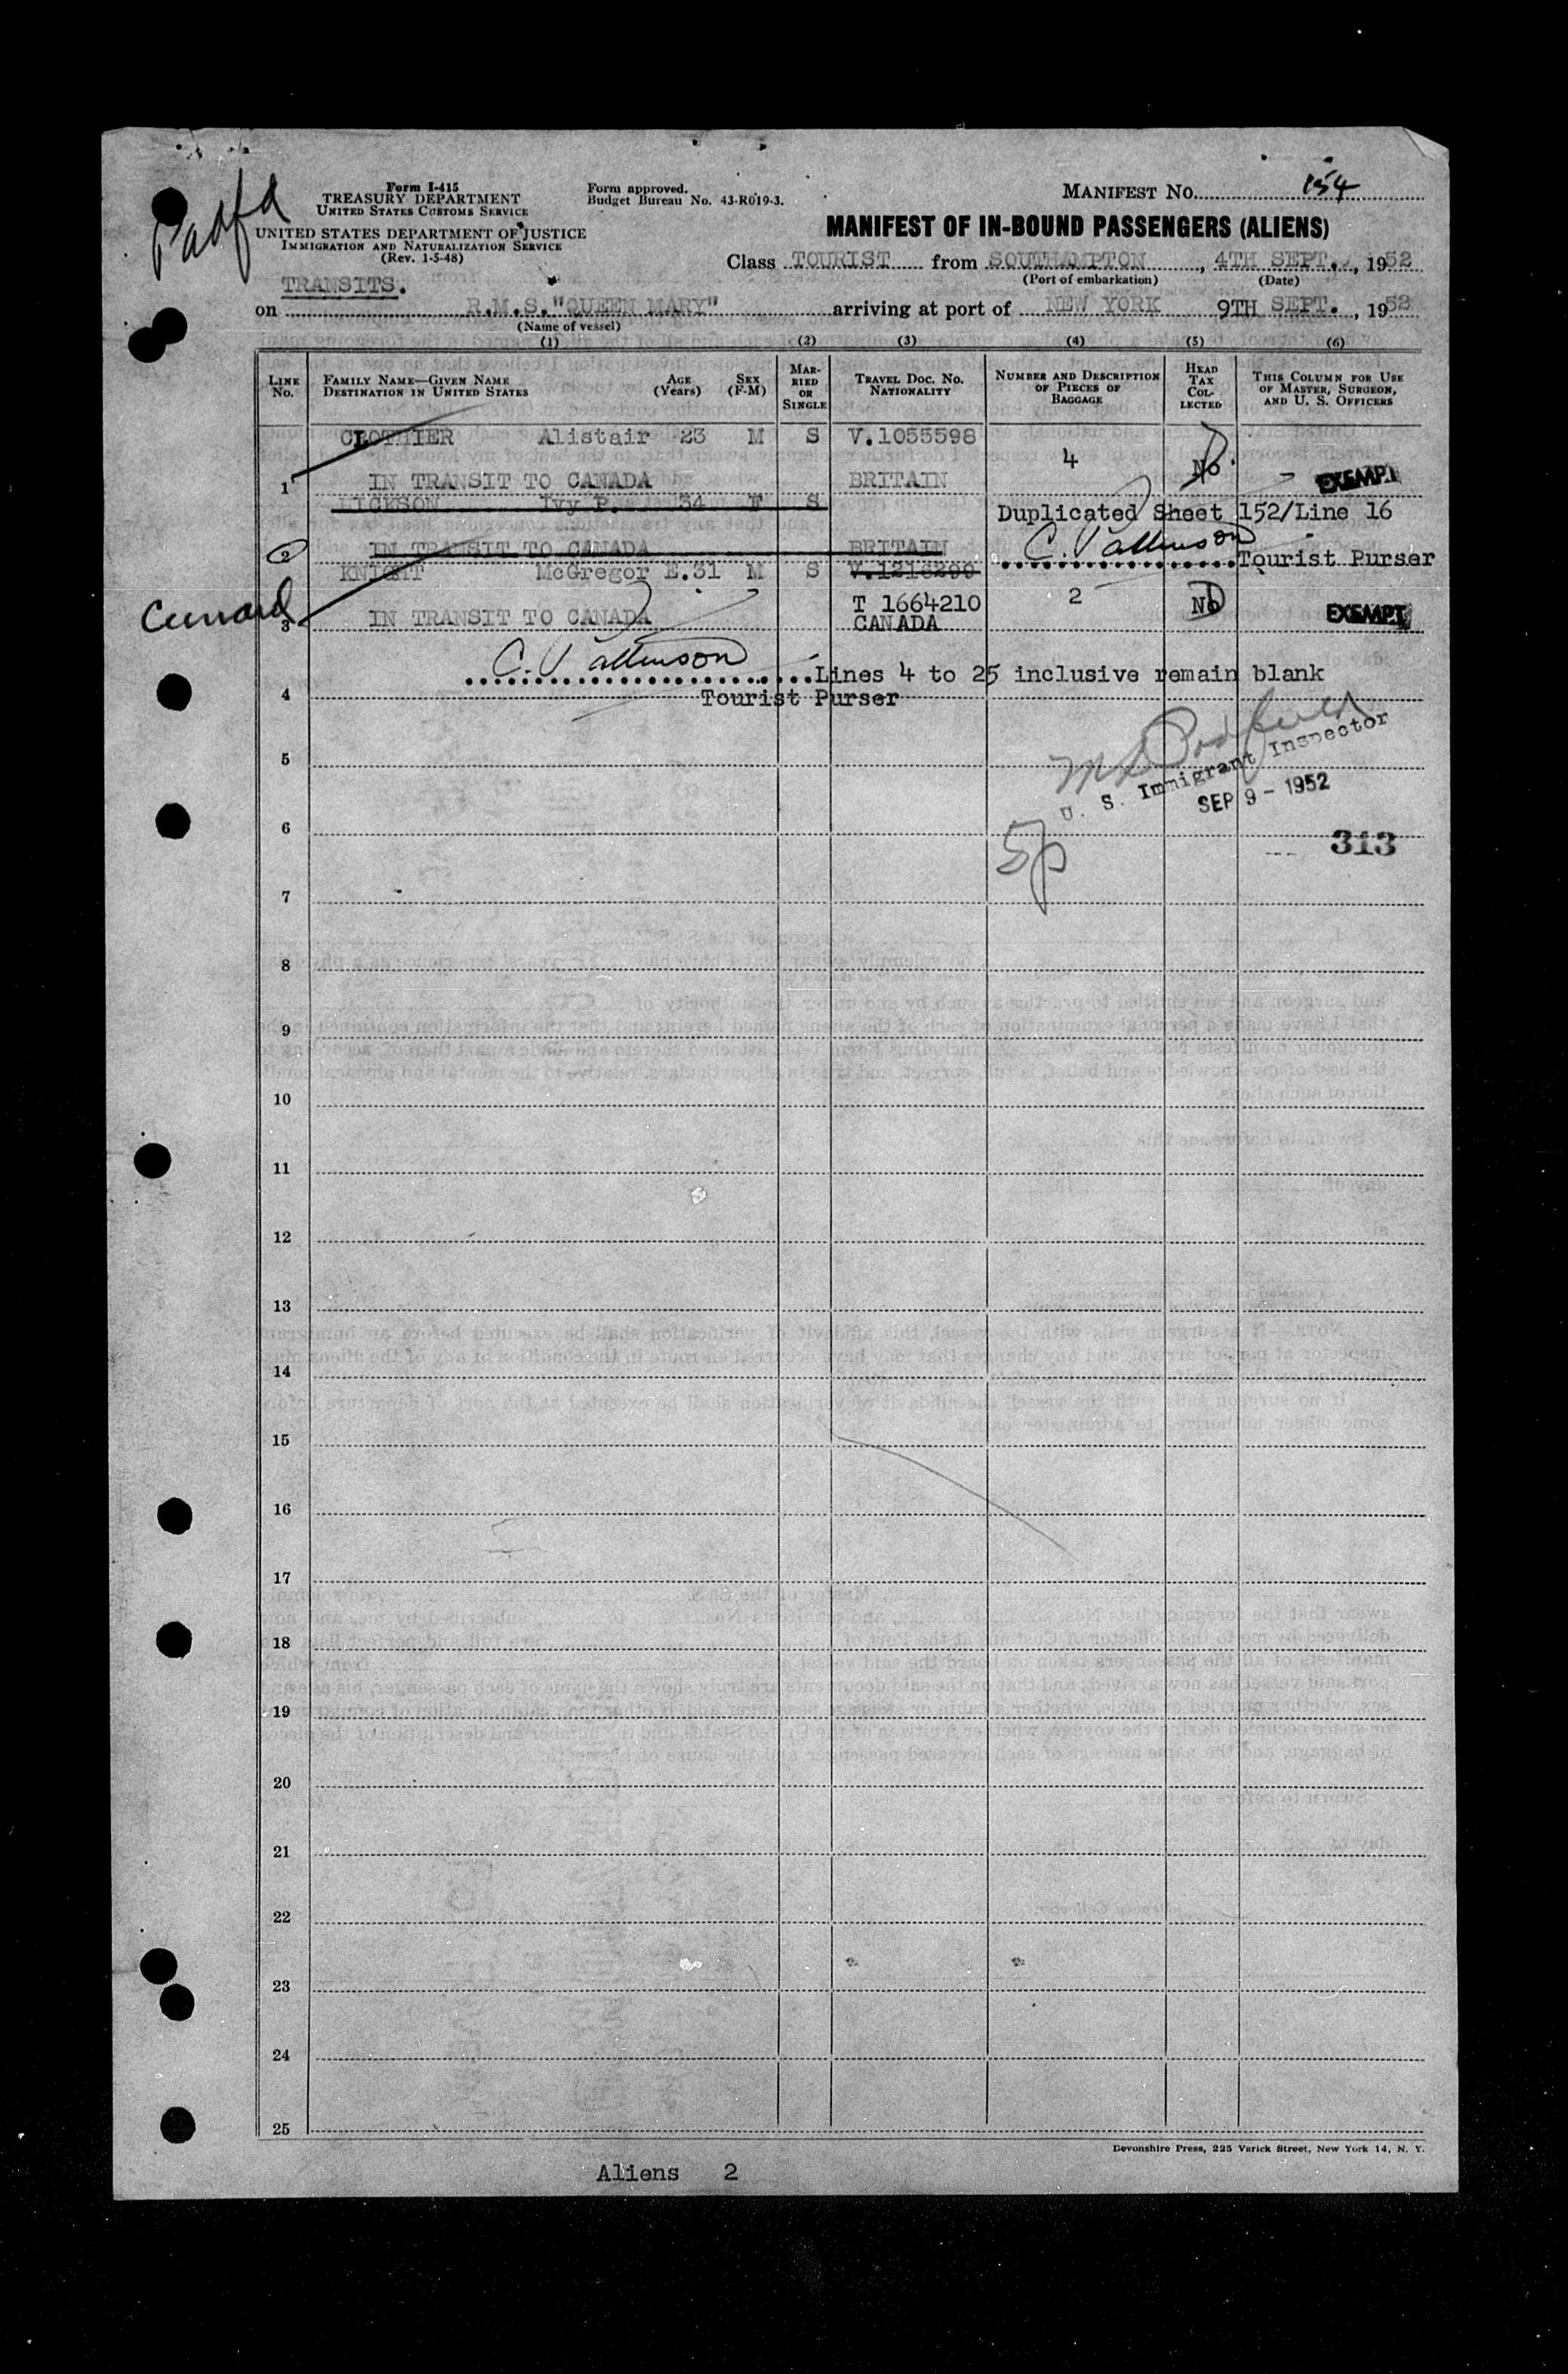 Form I-415
TREASURY DEPARTMENT
UNITED STATES CUSTOMS SERVICE
UNITED STATES DEPARTMENT OF JUSTICE
IMMIGRATION AND NATURALIZATION SERVICE
(Rev. 1-5-48)
Form approved.
Budget Bureau No. 43-R019-3.
MANIFEST NO. 154
MANIFEST OF IN-BOUND PASSENGERS (ALIENS)
Class TOURIST from SOUTHAMPTON, 4TH SEPT., 1952
(Port of embarkation) (Date)
TRANSITS.
on R.M.S. "QUEEN MARY" arriving at port of NEW YORK 9TH SEPT., 1952
(Name of vessel)
(1) (2) (3) (4) (5) (6)
LINE NO. FAMILY NAME—GIVEN NAME DESTINATION IN UNITED STATES AGE (Years) SEX (F-M) MARRIED OR SINGLE TRAVEL DOC. NO. NATIONALITY NUMBER AND DESCRIPTION OF PIECES OF BAGGAGE HEAD TAX COLLECTED THIS COLUMN FOR USE OF MASTER, SURGEON, AND U. S. OFFICERS
CLOTHIER Alistair 23 M S V.1055598
1 IN TRANSIT TO CANADA BRITAIN 4 No EXEMPT
Ivy P. 34 F S Duplicated Sheet 152/Line 16
2 IN TRANSIT TO CANADA BRITAIN Tourist Purser
KNIGHT McGregor E. 31 M S V.1218299
T 1664210 2 No EXEMPT
Cunard 3 IN TRANSIT TO CANADA CANADA
Lines 4 to 25 inclusive remain blank
4 Tourist Purser
U. S. Immigrant Inspector
5
SEP 9 - 1952
6
313
7
8
9
10
11
12
13
14
15
16
17
18
19
20
21
22
23
24
25
Devonshire Press, 225 Varick Street, New York 14, N. Y.
Aliens 2